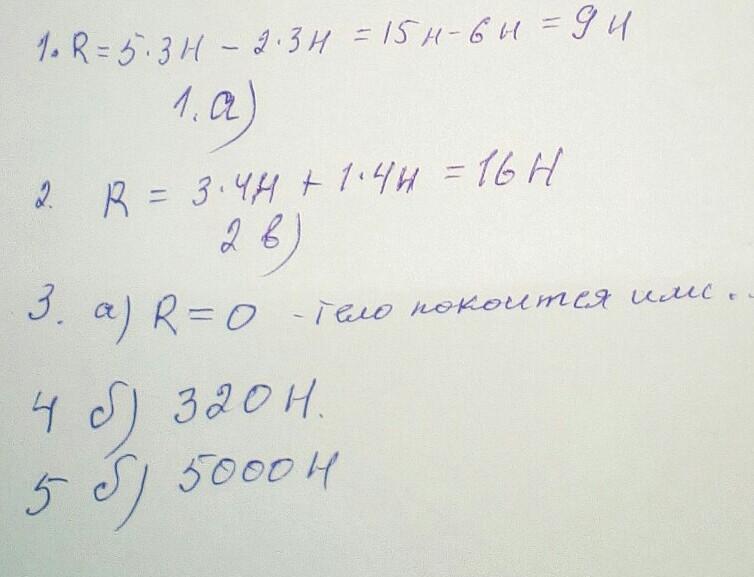 1. R = 5·3Н – 2·3Н = 15н – 6н = 9Н
1. а)
2. R = 3·4Н + 1·4н = 16Н
2 в)
3. а) R = 0 – тело покоится
4 б) 320 Н.
5 б) 5000 Н